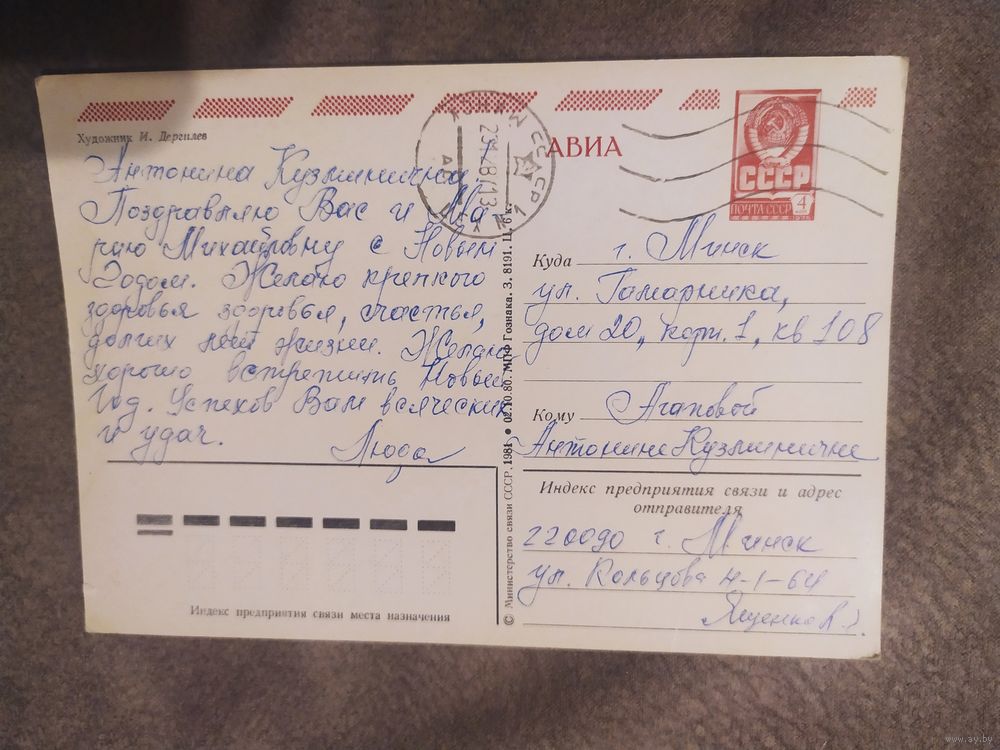 Художник И. Дергилев
АВИА
СССР
ПОЧТА СССР
4
Антонина Кузьминична!
Поздравляю Вас и Ма-
рию Михайловну с Новым
Годом. Желаю крепкого
здоровья здоровья, счастья,
долгих лет жизни. Желаю
хорошо встретить Новый
Год. Успехов Вам всяческих
и удач.
Люда
Индекс предприятия связи места назначения
© Министерство связи СССР. 1981 ● 02.10.80. МПФ Гознака. З. 8191. Ц. 6 к.
Куда г. Минск
ул. Гамарника,
дом 20, корп. 1, кв 108
Кому Агаповой
Антонине Кузьминичне
Индекс предприятия связи и адрес
отправителя
220090 г. Минск
ул. Кольцова 4-1-64
Ященко Л.
www.ay.by